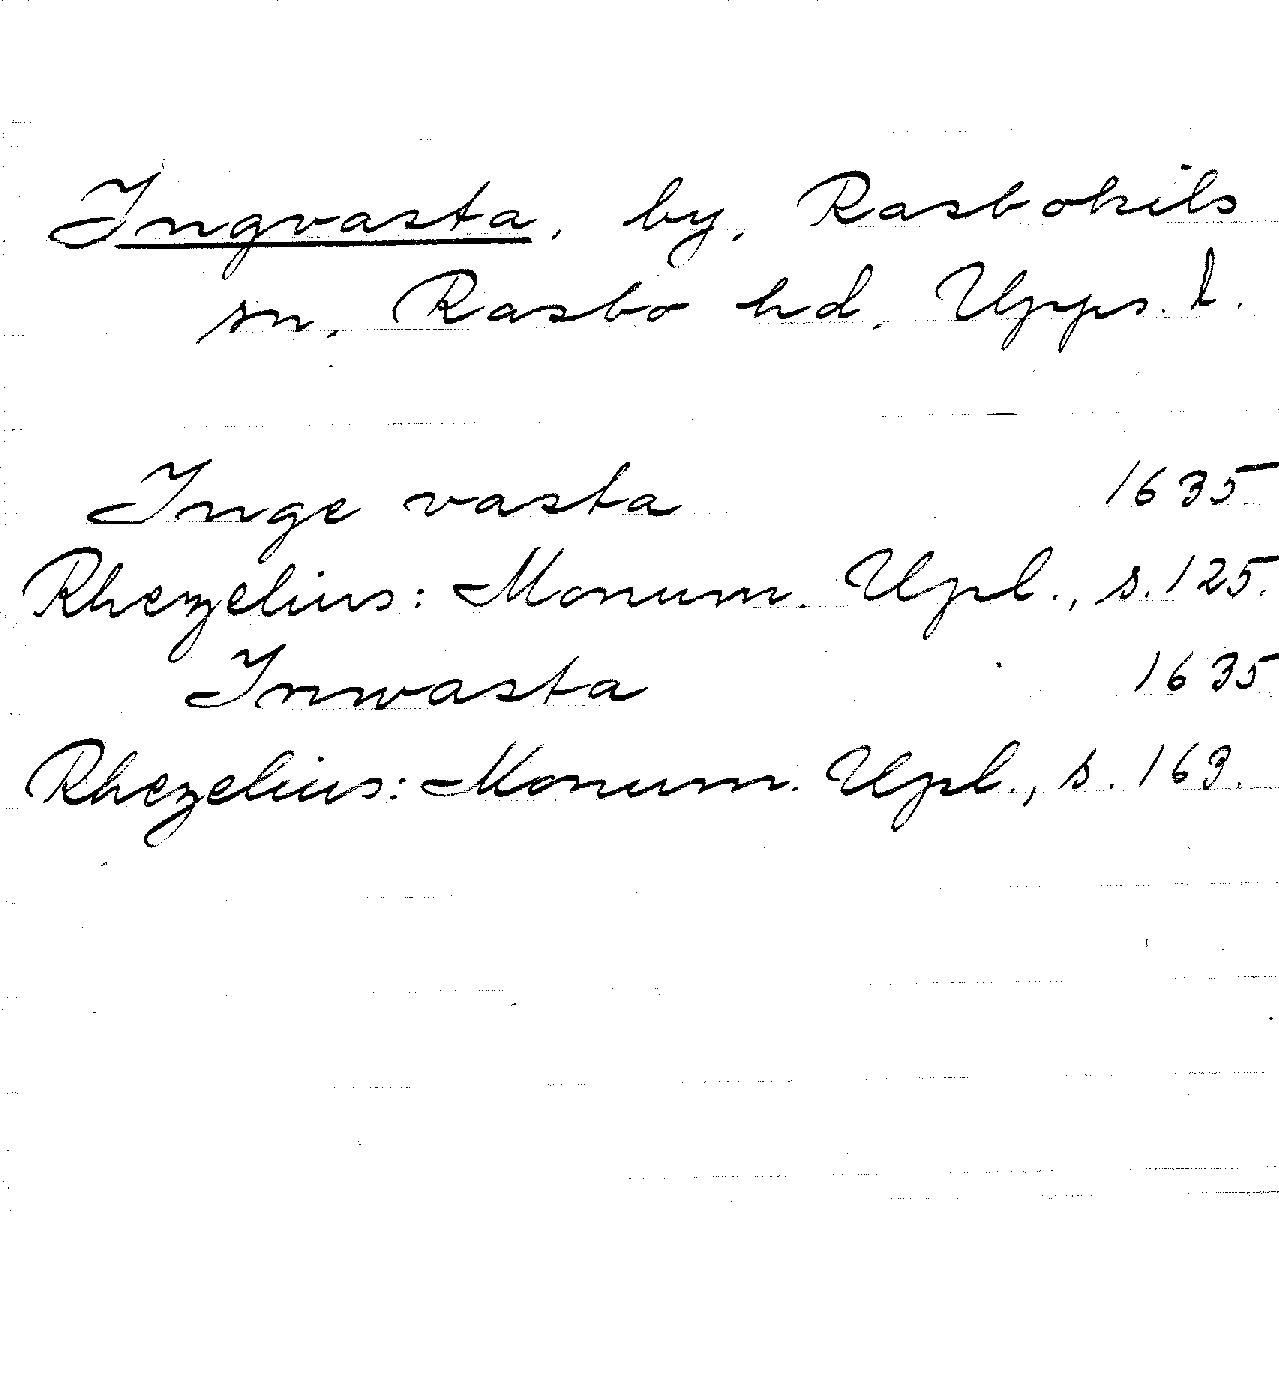 Ingvasta, by, Rasbokils
sn, Rasbo hd, Upps. l.
Inge vasta 1635
Rhezelius: Monum. Upl., s. 125.
Inwasta 1635
Rhezelius: Monum. Upl., s. 163.